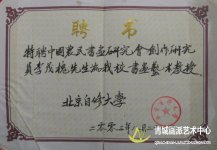 聘书
特聘中国农民书画研究会创作研究
员李茂槐先生为我校书画艺术教授
北京自修大学
二〇〇二年八月二
诸城画派艺术中心